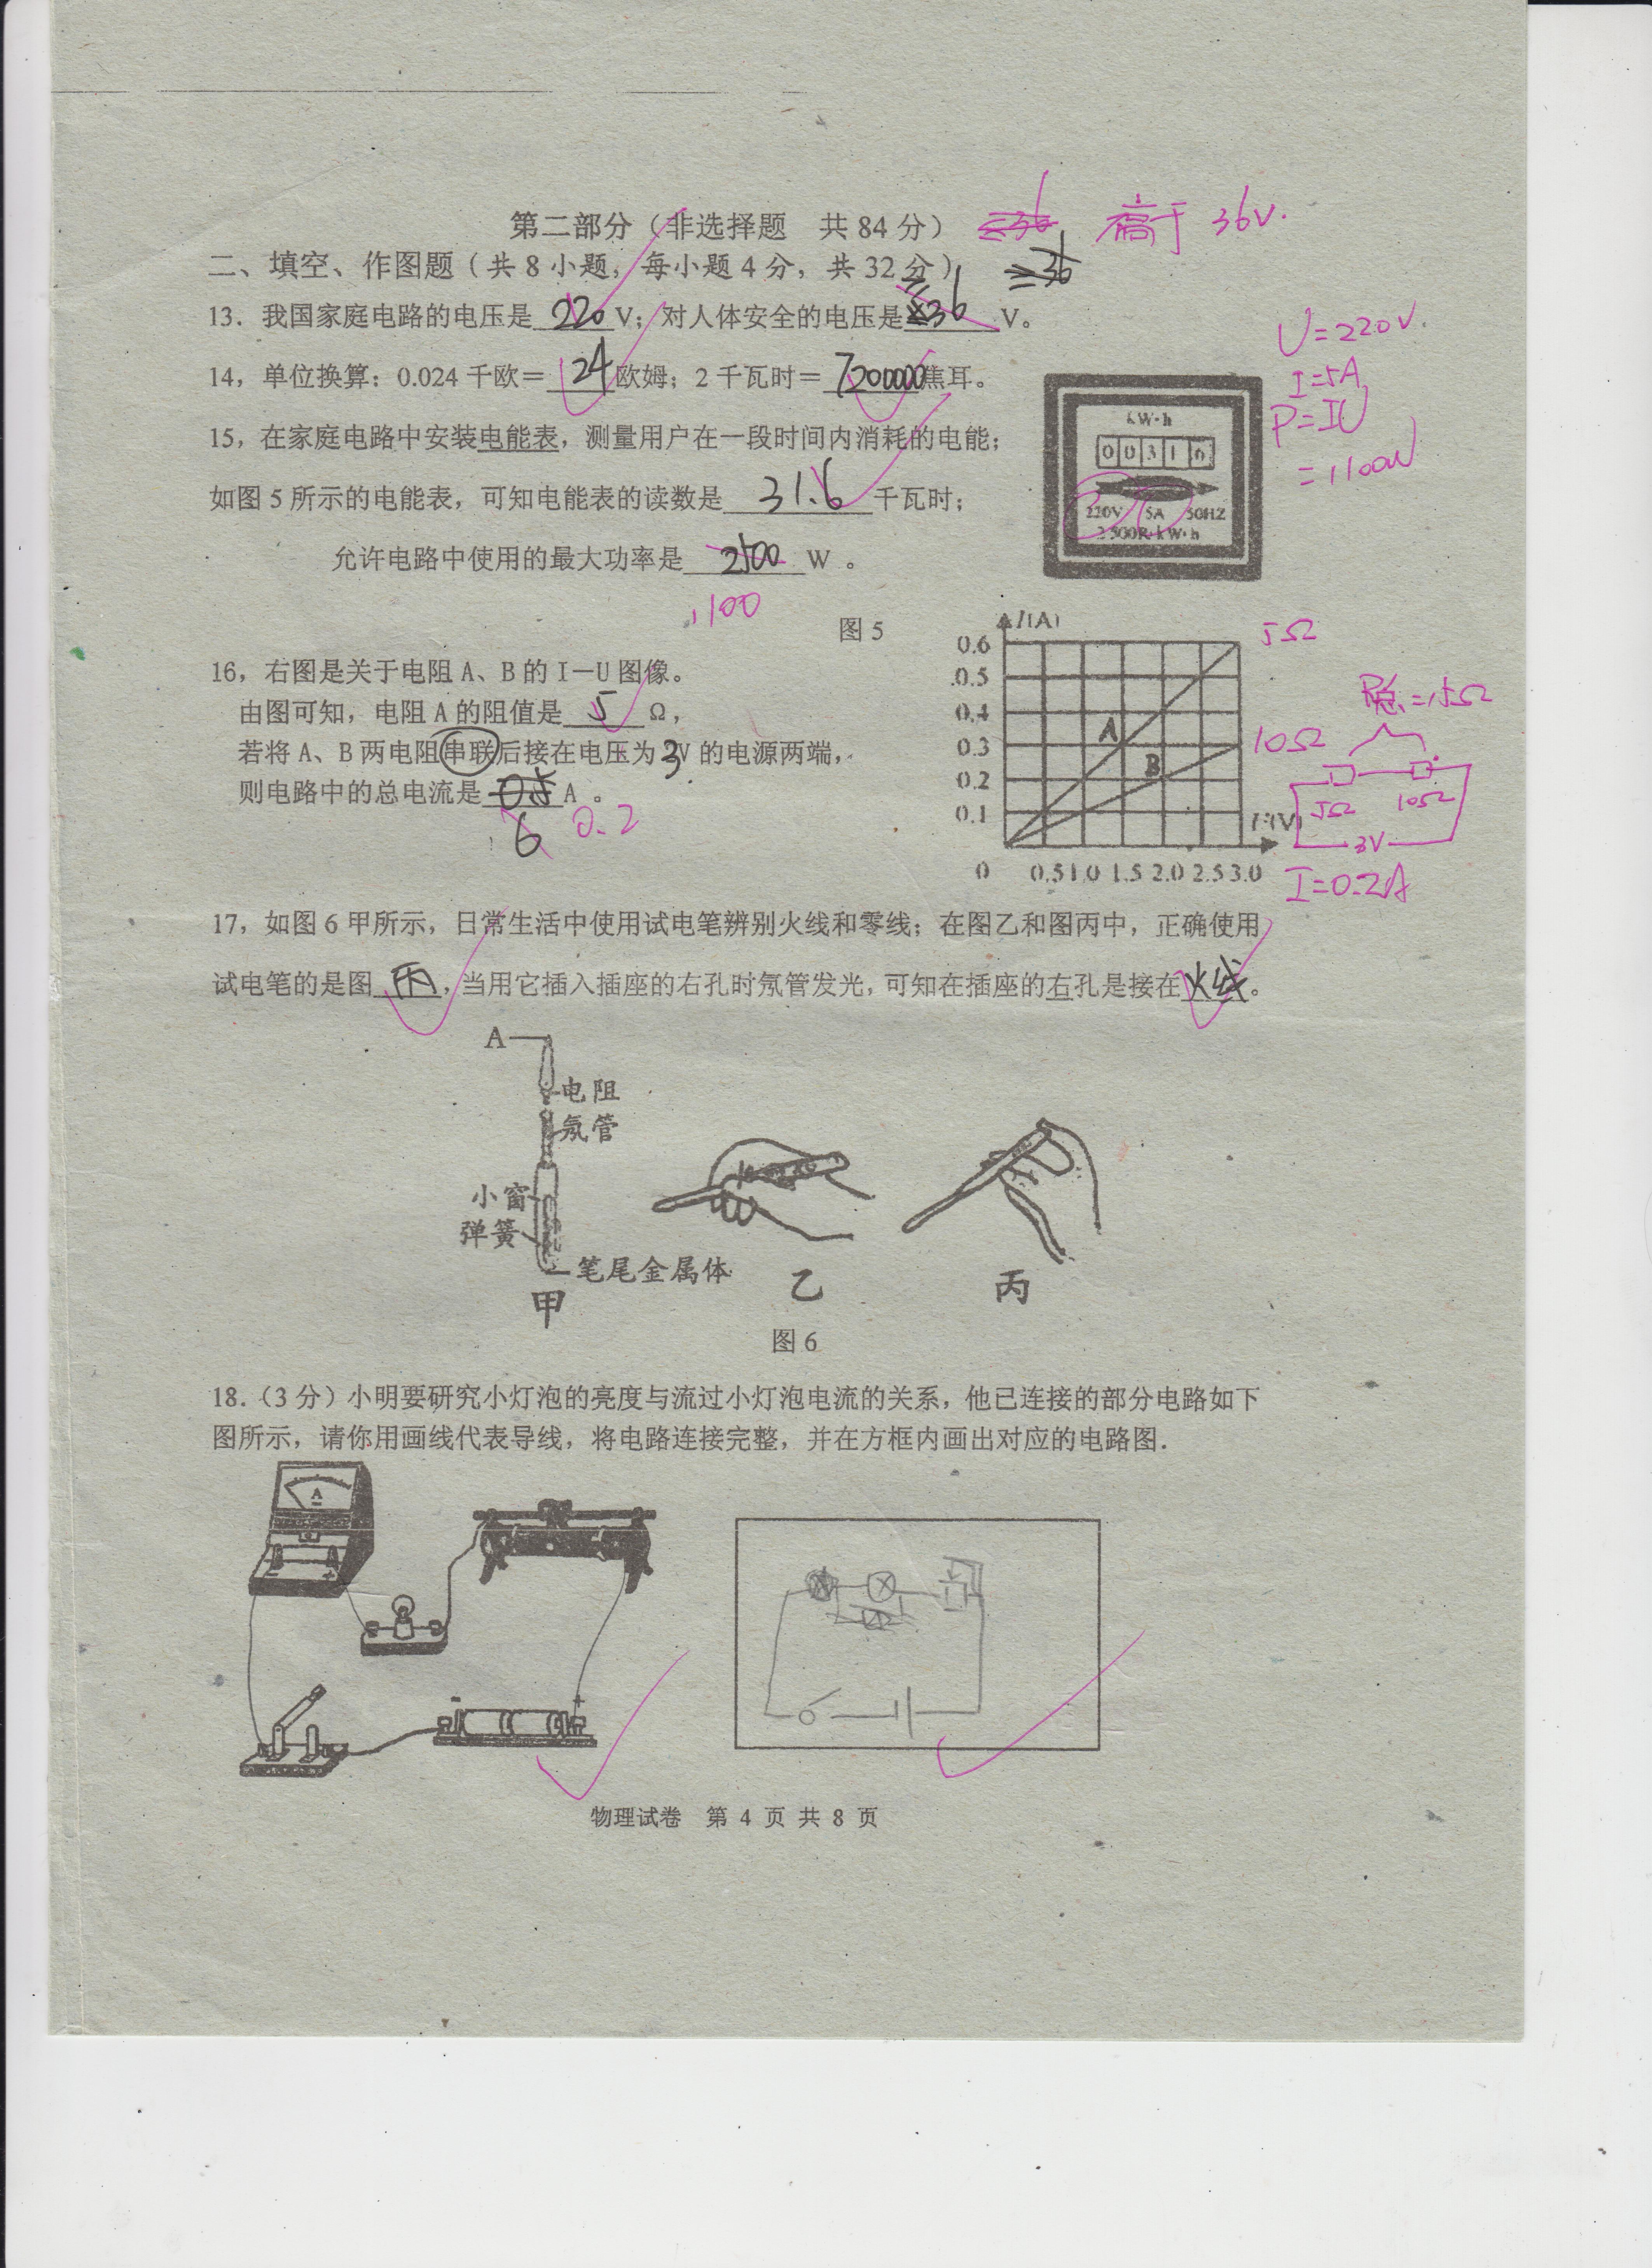 第二部分（非选择题 共 84 分） ≤36 高于 36V.
二、填空、作图题（共 8 小题，每小题 4 分，共 32 分） ≥36
13. 我国家庭电路的电压是 220 V；对人体安全的电压是 36 V。
14，单位换算：0.024 千欧＝ 24 欧姆；2 千瓦时＝ 7200000 焦耳。
15，在家庭电路中安装电能表，测量用户在一段时间内消耗的电能；
如图 5 所示的电能表，可知电能表的读数是 31.6 千瓦时；
允许电路中使用的最大功率是 2500 W 。
1100
kW·h
0 0 3 1 6
220V 5A 50HZ
2500R·kW·h
U=220V.
I=5A
P=IU
=1100W
图 5
16，右图是关于电阻 A、B 的 I－U 图像。
由图可知，电阻 A 的阻值是 5 Ω，
若将 A、B 两电阻串联后接在电压为 3V 的电源两端，
则电路中的总电流是 0.5 A 。
6 0.2
I(A)
0.6
0.5
0.4
0.3
0.2
0.1
0 0.5 1.0 1.5 2.0 2.5 3.0
U(V)
A
B
5Ω
10Ω
R总=15Ω
5Ω 10Ω
3V
I=0.2A
17，如图 6 甲所示，日常生活中使用试电笔辨别火线和零线；在图乙和图丙中，正确使用
试电笔的是图 丙 ，当用它插入插座的右孔时氖管发光，可知在插座的右孔是接在 火线 。
A
电阻
氖管
小窗
弹簧
笔尾金属体
甲
乙
丙
图 6
18.（3 分）小明要研究小灯泡的亮度与流过小灯泡电流的关系，他已连接的部分电路如下
图所示，请你用画线代表导线，将电路连接完整，并在方框内画出对应的电路图．
A
- +
物理试卷 第 4 页 共 8 页